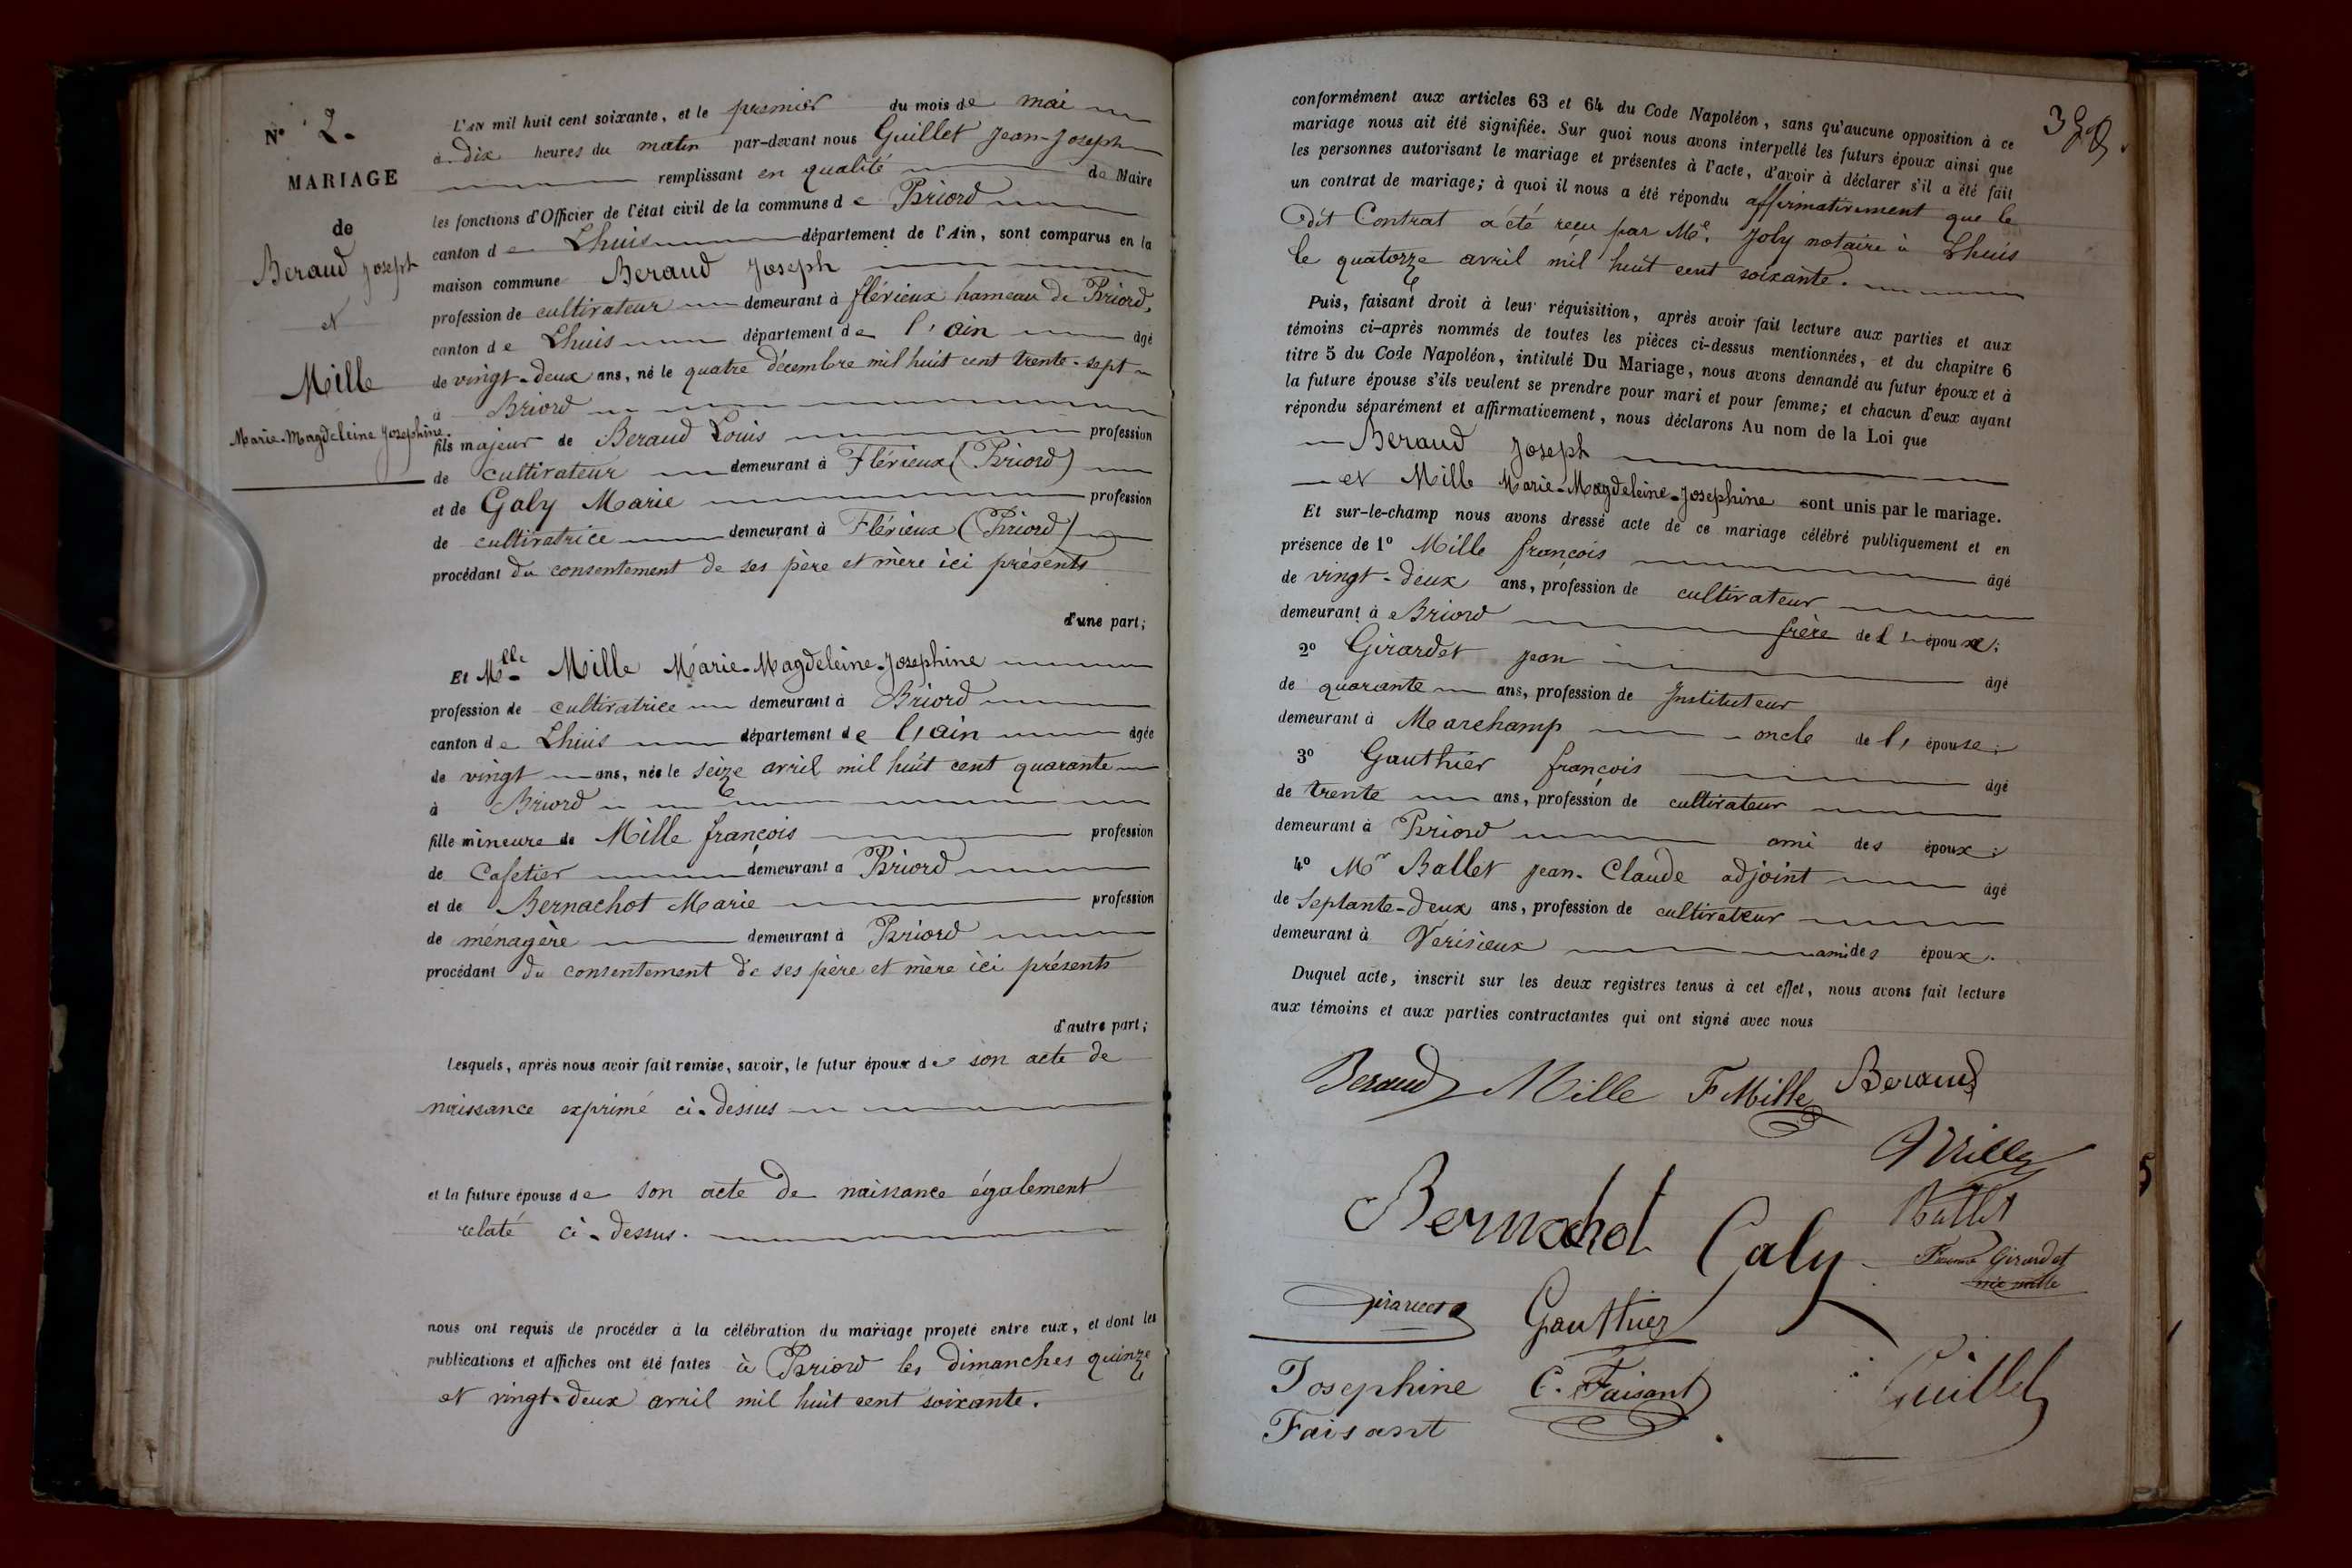 N° 2.
MARIAGE
de
Beraud Joseph
et
Mille
Marie-Magdeleine Josephine.
L'AN mil huit cent soixante, et le premier du mois de mai
à dix heures du matin par-devant nous Guillet Jean-Joseph
remplissant en qualité de Maire
les fonctions d'Officier de l'état civil de la commune de Briord
canton de Lhuis département de l'Ain, sont comparus en la
maison commune Beraud Joseph
profession de cultivateur demeurant à flérieux hameau de Briord,
canton de Lhuis département de l'ain âgé
de vingt-deux ans, né le quatre décembre mil huit cent trente-sept
à Briord
fils majeur de Beraud Louis profession
de cultivateur demeurant à Flérieux (Briord)
et de Galy Marie profession
de cultivatrice demeurant à Flérieux (Briord)
procédant du consentement de ses père et mère ici présents
d'une part;
Et Mlle Mille Marie-Magdeleine-Josephine
profession de cultivatrice demeurant à Briord
canton de Lhuis département de l'ain âgée
de vingt ans, née le seize avril mil huit cent quarante
à Briord
fille mineure de Mille françois profession
de Cafetier demeurant à Briord
et de Bernachot Marie profession
de ménagère demeurant à Briord
procédant du consentement de ses père et mère ici présents
d'autre part;
Lesquels, après nous avoir fait remise, savoir, le futur époux de son acte de
naissance exprimé ci-dessus
et la future épouse de son acte de naissance également
relaté ci-dessus.
nous ont requis de procéder à la célébration du mariage projeté entre eux, et dont les
publications et affiches ont été faites à Briord les dimanches quinze
et vingt-deux avril mil huit cent soixante.
conformément aux articles 63 et 64 du Code Napoléon, sans qu'aucune opposition à ce
mariage nous ait été signifiée. Sur quoi nous avons interpellé les futurs époux ainsi que
les personnes autorisant le mariage et présentes à l'acte, d'avoir à déclarer s'il a été fait
un contrat de mariage; à quoi il nous a été répondu affirmativement que le
dit Contrat a été reçu par Me. Joly notaire à Lhuis
le quatorze avril mil huit cent soixante.
Puis, faisant droit à leur réquisition, après avoir fait lecture aux parties et aux
témoins ci-après nommés de toutes les pièces ci-dessus mentionnées, et du chapitre 6
titre 5 du Code Napoléon, intitulé Du Mariage, nous avons demandé au futur époux et à
la future épouse s'ils veulent se prendre pour mari et pour femme; et chacun d'eux ayant
répondu séparément et affirmativement, nous déclarons Au nom de la Loi que
Beraud Joseph
et Mille Marie-Magdeleine-Josephine sont unis par le mariage.
Et sur-le-champ nous avons dressé acte de ce mariage célébré publiquement et en
présence de 1° Mille françois âgé
de vingt-deux ans, profession de cultivateur
demeurant à Briord frère de l'épouse;
2° Girardet Jean âgé
de quarante ans, profession de Instituteur
demeurant à Marchamp oncle de l'épouse;
3° Gauthier françois âgé
de trente ans, profession de cultivateur
demeurant à Briord ami des époux;
4° Mr Ballet Jean-Claude adjoint âgé
de Septante-deux ans, profession de cultivateur
demeurant à Vérisieux ami des époux.
Duquel acte, inscrit sur les deux registres tenus à cet effet, nous avons fait lecture
aux témoins et aux parties contractantes qui ont signé avec nous
Beraud Mille F Mille Beraud
Mille
Bernachot Caly Ballet
Femme Girardet
née mille
Gauthier
Josephine C. Faisant Guillet
Faisant